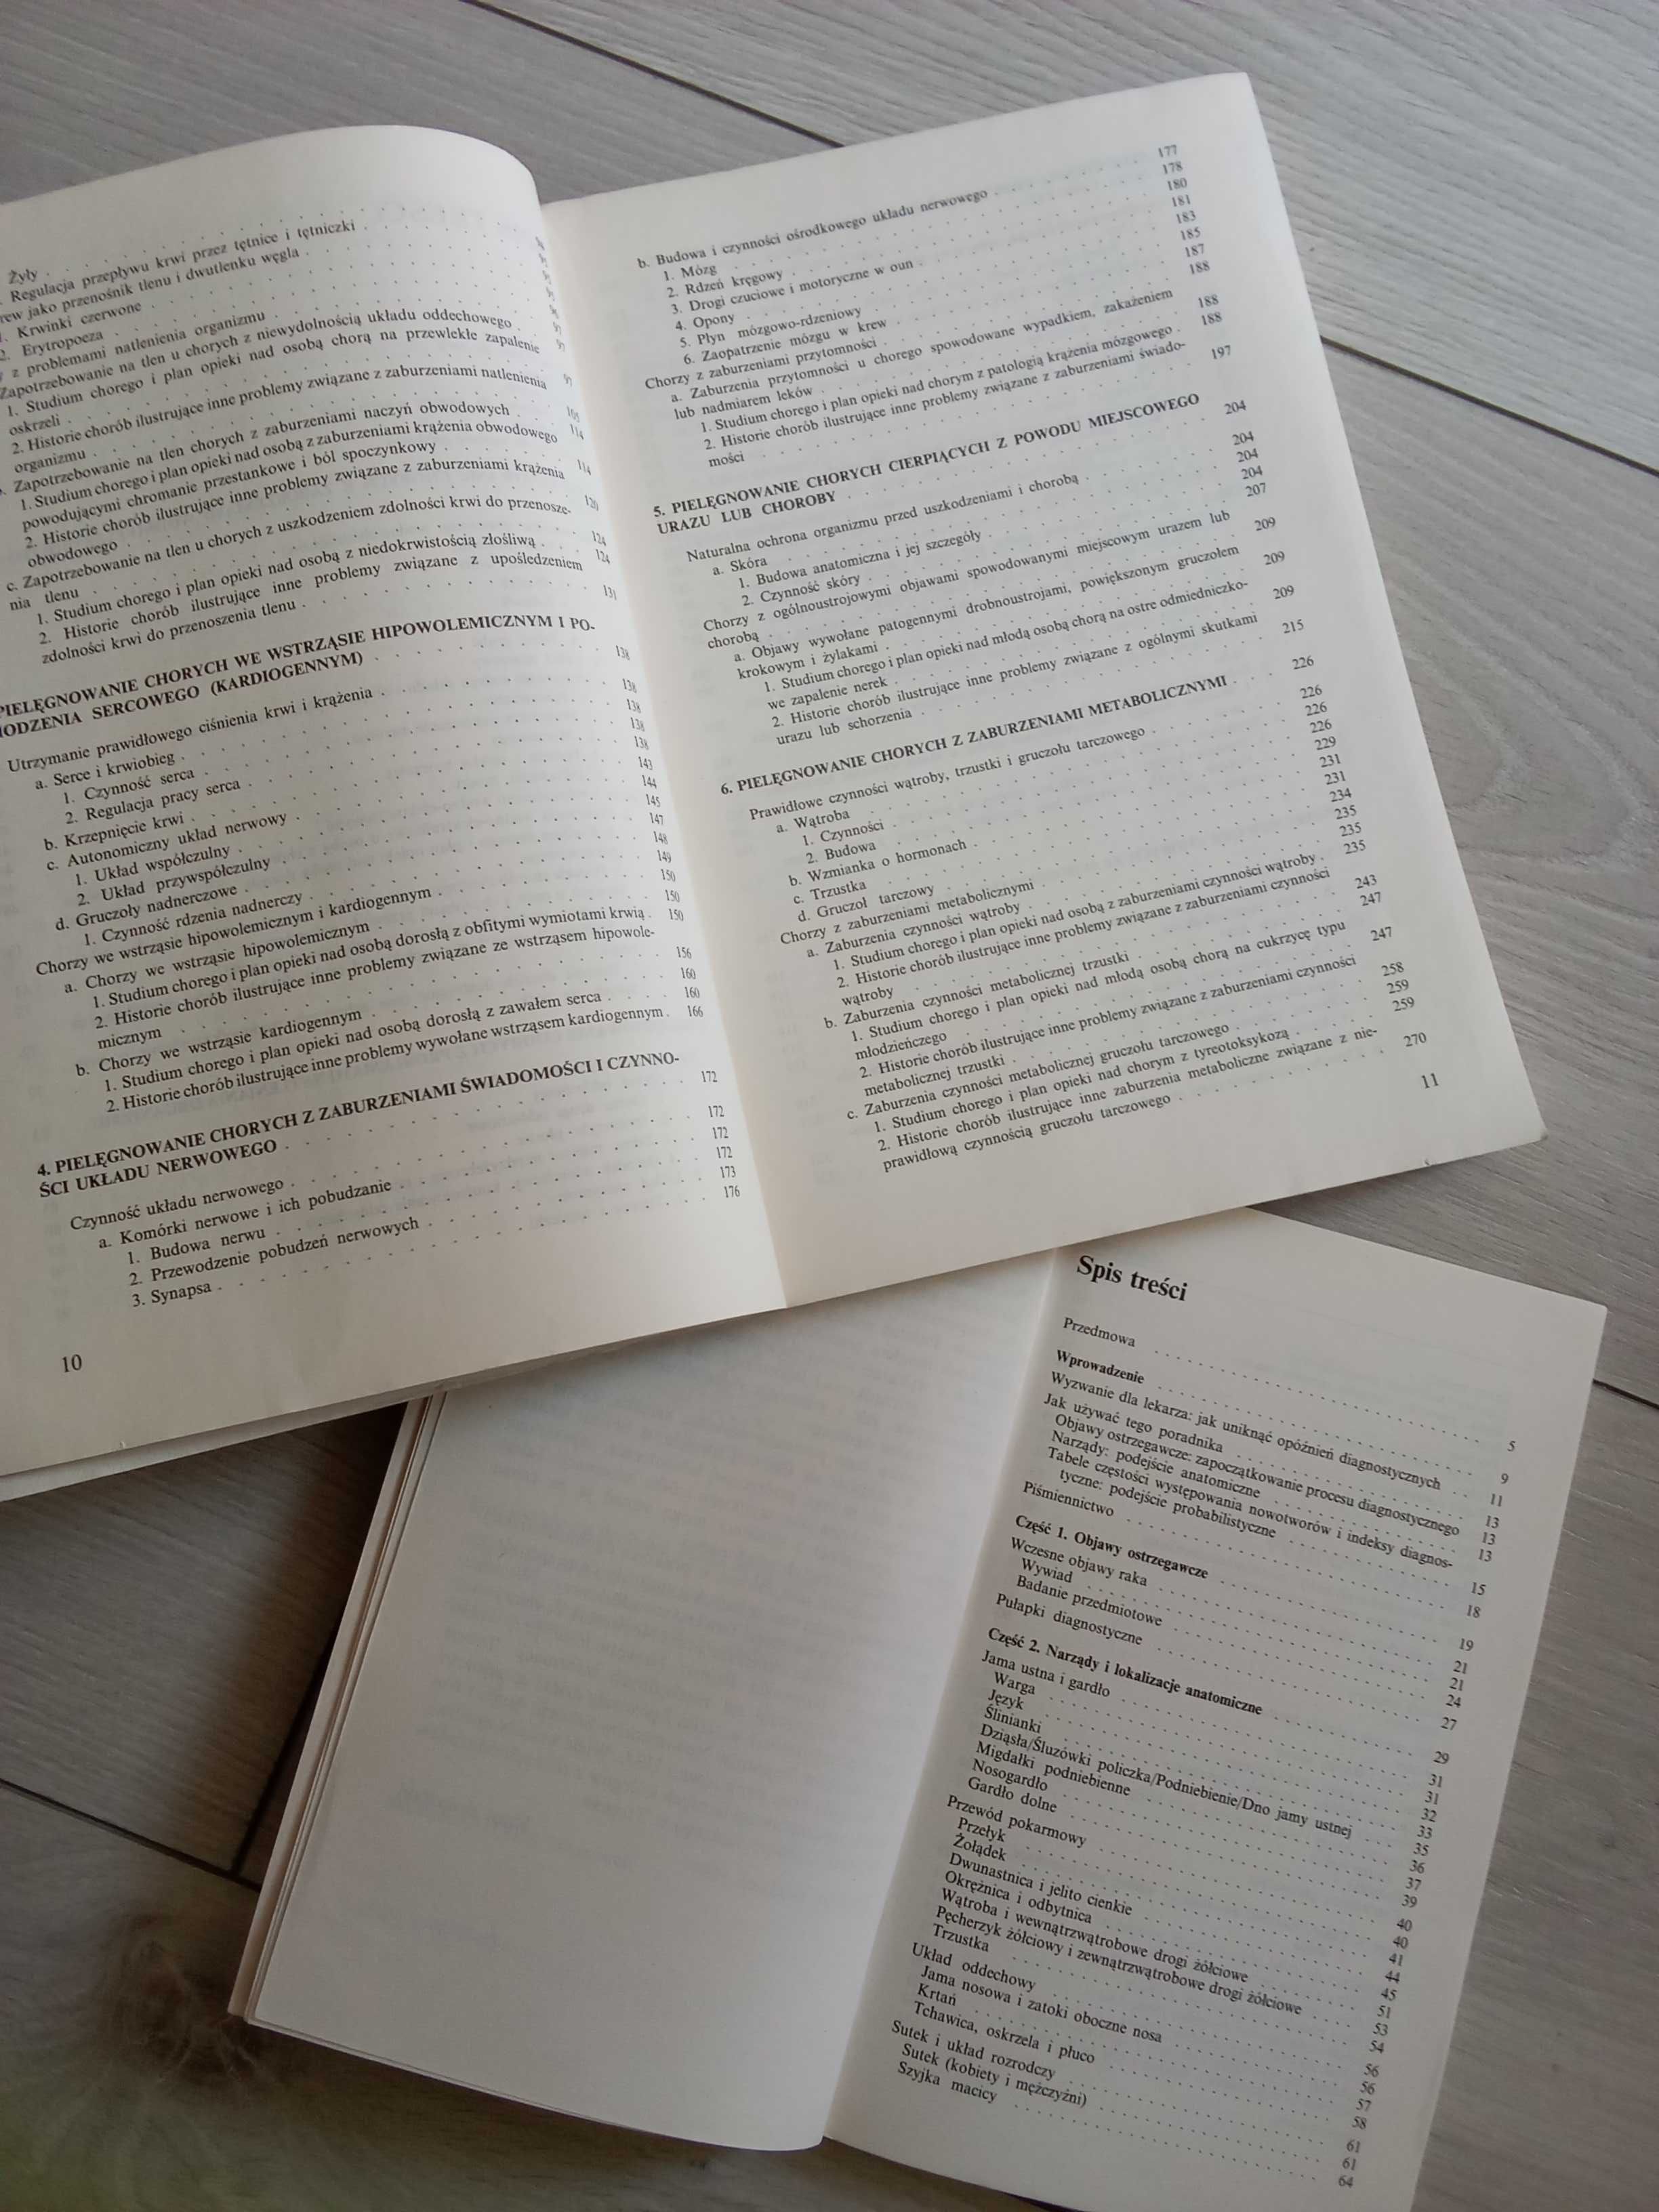 Żyły
Regulacja przepływu krwi przez tętnice i tętniczki
jako przenośnik tlenu i dwutlenku węgla
Krwinki czerwone
2. Erytropoeza
z problemami natlenienia organizmu
Zapotrzebowanie na tlen u chorych z niewydolnością układu oddechowego
1. Studium chorego i plan opieki nad osobą chorą na przewlekłe zapalenie
oskrzeli
2. Historie chorób ilustrujące inne problemy związane z zaburzeniami natlenienia
organizmu
Zapotrzebowanie na tlen chorych z zaburzeniami naczyń obwodowych
1. Studium chorego i plan opieki nad osobą z zaburzeniami krążenia obwodowego
powodującymi chromanie przestankowe i ból spoczynkowy
2. Historie chorób ilustrujące inne problemy związane z zaburzeniami krążenia
obwodowego
c. Zapotrzebowanie na tlen u chorych z uszkodzeniem zdolności krwi do przenosze-
nia tlenu
1. Studium chorego i plan opieki nad osobą z niedokrwistością złośliwą 124
2. Historie chorób ilustrujące inne problemy związane z upośledzeniem
zdolności krwi do przenoszenia tlenu
PIELĘGNOWANIE CHORYCH WE WSTRZĄSIE HIPOWOLEMICZNYM I PO-
SERCOWEGO (KARDIOGENNYM)
Utrzymanie prawidłowego ciśnienia krwi i krążenia
a. Serce i krwiobieg
1. Czynność serca
2. Regulacja pracy serca
b. Krzepnięcie krwi 143
c. Autonomiczny układ nerwowy 144
1. Układ współczulny 145
2. Układ przywspółczulny 147
d. Gruczoły nadnerczowe 148
1. Czynność rdzenia nadnerczy 149
Chorzy we wstrząsie hipowolemicznym i kardiogennym 150
a. Chorzy we wstrząsie hipowolemicznym 150
1. Studium chorego i plan opieki nad osobą dorosłą z obfitymi wymiotami krwią 150
2. Historie chorób ilustrujące inne problemy związane ze wstrząsem hipowole-
micznym 156
b. Chorzy we wstrząsie kardiogennym 160
1. Studium chorego i plan opieki nad osobą dorosłą z zawałem serca 160
2. Historie chorób ilustrujące inne problemy wywołane wstrząsem kardiogennym 166
4. PIELĘGNOWANIE CHORYCH Z ZABURZENIAMI ŚWIADOMOŚCI I CZYNNO-
ŚCI UKŁADU NERWOWEGO 172
Czynność układu nerwowego 172
a. Komórki nerwowe i ich pobudzanie 172
1. Budowa nerwu 172
2. Przewodzenie pobudzeń nerwowych 173
3. Synapsa 176
10
b. Budowa i czynności ośrodkowego układu nerwowego 177
1. Mózg 178
2. Rdzeń kręgowy 180
3. Drogi czuciowe i motoryczne w oun 181
4. Opony 183
5. Płyn mózgowo-rdzeniowy 185
6. Zaopatrzenie mózgu w krew 187
Chorzy z zaburzeniami przytomności 188
a. Zaburzenia przytomności u chorego spowodowane wypadkiem, zakażeniem
lub nadmiarem leków 188
1. Studium chorego i plan opieki nad chorym z patologią krążenia mózgowego 188
2. Historie chorób ilustrujące inne problemy związane z zaburzeniami świado-
mości 197
5. PIELĘGNOWANIE CHORYCH CIERPIĄCYCH Z POWODU MIEJSCOWEGO
URAZU LUB CHOROBY 204
Naturalna ochrona organizmu przed uszkodzeniami i chorobą 204
a. Skóra 204
1. Budowa anatomiczna i jej szczegóły 204
2. Czynność skóry 207
Chorzy z ogólnoustrojowymi objawami spowodowanymi miejscowym urazem lub
chorobą 209
a. Objawy wywołane patogennymi drobnoustrojami, powiększonym gruczołem
krokowym i żylakami 209
1. Studium chorego i plan opieki nad młodą osobą chorą na ostre odmiedniczko-
we zapalenie nerek 209
2. Historie chorób ilustrujące inne problemy związane z ogólnymi skutkami
urazu lub schorzenia 215
6. PIELĘGNOWANIE CHORYCH Z ZABURZENIAMI METABOLICZNYMI 226
Prawidłowe czynności wątroby, trzustki i gruczołu tarczowego 226
a. Wątroba 226
1. Czynności 226
2. Budowa 229
b. Wzmianka o hormonach 231
c. Trzustka 231
d. Gruczoł tarczowy 234
Chorzy z zaburzeniami metabolicznymi 235
a. Zaburzenia czynności wątroby 235
1. Studium chorego i plan opieki nad osobą z zaburzeniami czynności wątroby 235
2. Historie chorób ilustrujące inne problemy związane z zaburzeniami czynności
wątroby 243
b. Zaburzenia czynności metabolicznej trzustki 247
1. Studium chorego i plan opieki nad młodą osobą chorą na cukrzycę typu
młodzieńczego 247
2. Historie chorób ilustrujące inne problemy związane z zaburzeniami czynności
metabolicznej trzustki 258
c. Zaburzenia czynności metabolicznej gruczołu tarczowego 259
1. Studium chorego i plan opieki nad chorym z tyreotoksykozą 259
2. Historie chorób ilustrujące inne zaburzenia metaboliczne związane z nie-
prawidłową czynnością gruczołu tarczowego 270
11
Spis treści
Przedmowa 5
Wprowadzenie 9
Wyzwanie dla lekarza: jak uniknąć opóźnień diagnostycznych 11
Jak używać tego poradnika 13
Objawy ostrzegawcze: zapoczątkowanie procesu diagnostycznego 13
Narządy: podejście anatomiczne 13
Tabele częstości występowania nowotworów i indeksy diagnos-
tyczne: podejście probabilistyczne 15
Piśmiennictwo 18
Część 1. Objawy ostrzegawcze 19
Wczesne objawy raka 21
Wywiad 21
Badanie przedmiotowe 24
Pułapki diagnostyczne 27
Część 2. Narządy i lokalizacje anatomiczne 29
Jama ustna i gardło 31
Warga 31
Język 32
Ślinianki 33
Dziąsła/Śluzówki policzka/Podniebienie/Dno jamy ustnej 35
Migdałki podniebienne 36
Nosogardło 37
Gardło dolne 39
Przewód pokarmowy 40
Przełyk 40
Żołądek 41
Dwunastnica i jelito cienkie 44
Okrężnica i odbytnica 45
Wątroba i wewnątrzwątrobowe drogi żółciowe 51
Pęcherzyk żółciowy i zewnątrzwątrobowe drogi żółciowe 53
Trzustka 54
Układ oddechowy 56
Jama nosowa i zatoki oboczne nosa 56
Krtań 57
Tchawica, oskrzela i płuco 58
Sutek i układ rozrodczy 61
Sutek (kobiety i mężczyźni) 61
Szyjka macicy 64